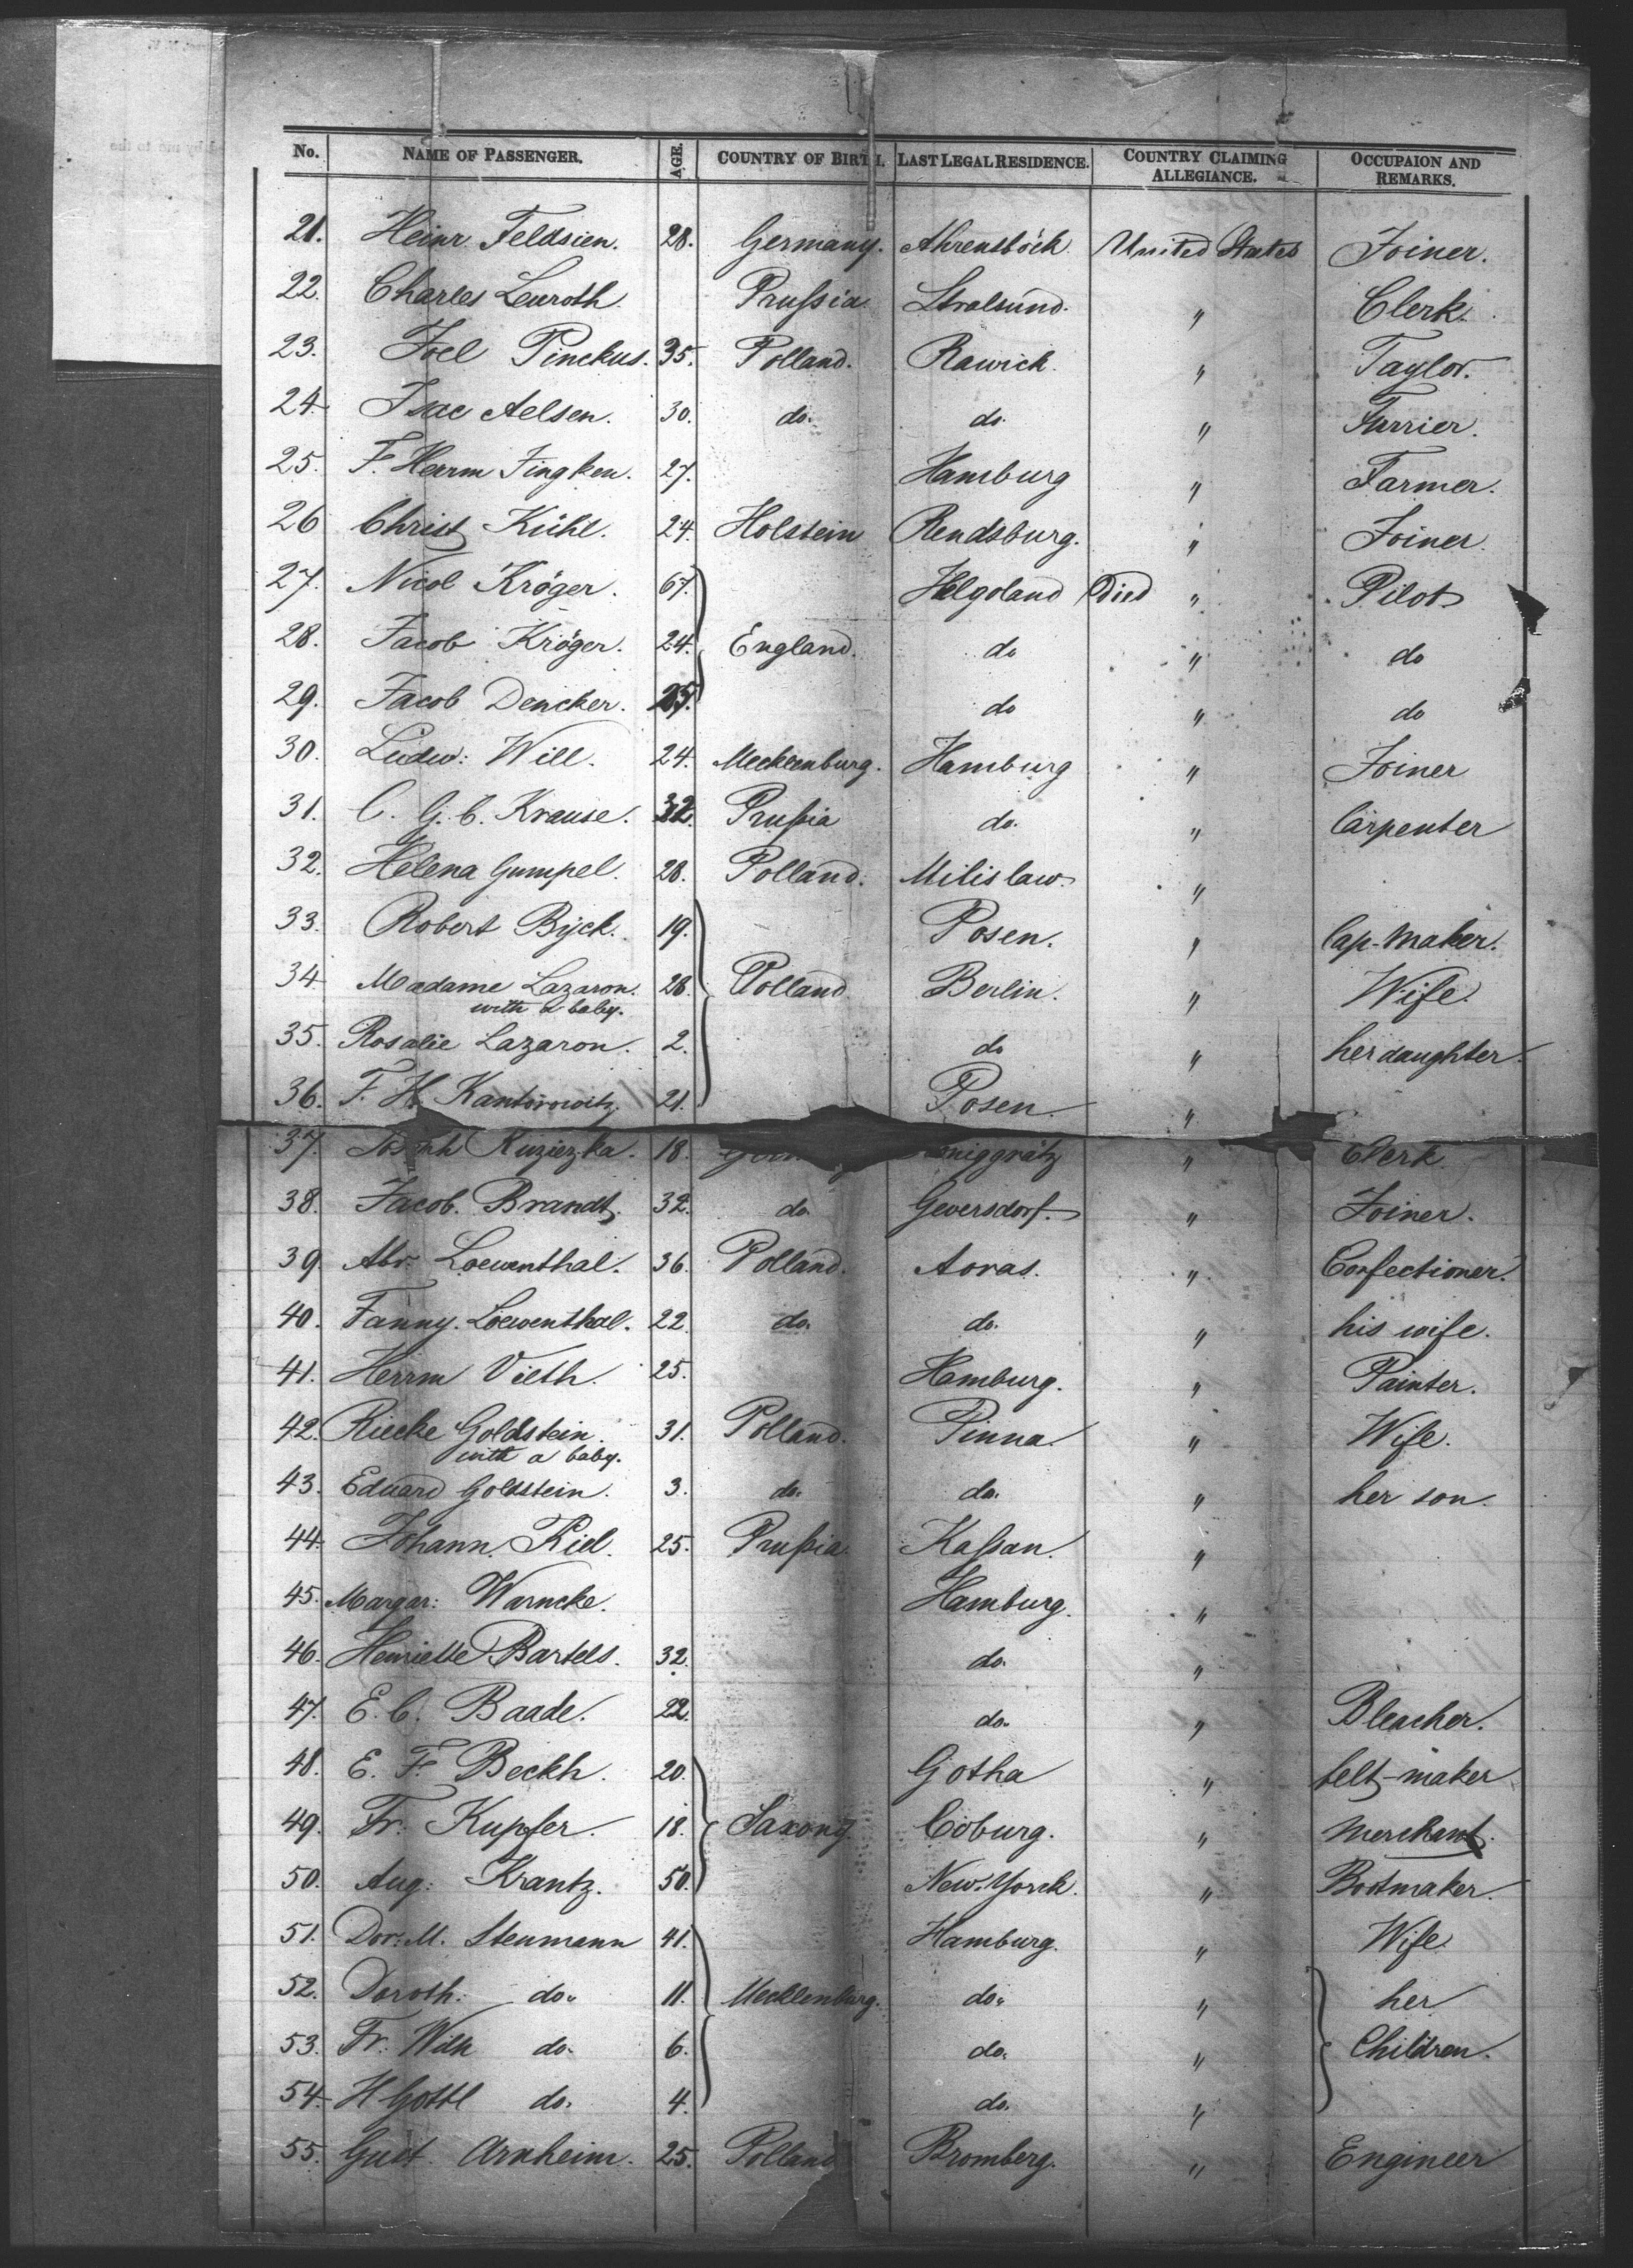 No. NAME OF PASSENGER. AGE. COUNTRY OF BIRTH. LAST LEGAL RESIDENCE. COUNTRY CLAIMING ALLEGIANCE. OCCUPAION AND REMARKS.
21. Heinr Feldsien. 28. Germany. Ahrensböck United States Joiner.
22. Charles Leuroth. Prußia Stralsund. " Clerk.
23. Joel Pinckus. 35. Polland. Rawich. " Taylor.
24. Isac Aelsen. 30. do. do. " Furrier.
25. F. Herrm Jingken. 27. Hamburg " Farmer.
26 Christ Kühl. 24. Holstein Rendsburg. " Joiner.
27. Nicol Kröger. 67. Helgoland Died " Pilot
28. Jacob Kröger. 24. England. do " do
29. Jacob Dencker. 25. do " do
30. Ludw: Will. 24. Mecklenburg. Hamburg " Joiner
31. C. G. C. Krause. 32. Prußia do. " Carpenter
32. Helena Gumpel. 28. Polland. Milislaw. "
33. Robert Bÿck. 19. Posen. " Cap-maker.
34 Madame Lazaron. 28. Polland Berlin. " Wife.
with a baby.
35. Rosalie Lazaron. 2. do " her daughter.
36. F. H. Kantorowitz. 21. Posen. "
37. Joseph Kuziezka. 18. niggrätz " Clerk.
38. Jacob. Brandt. 32. do. Geversdorf. " Joiner.
39. Abr. Loewenthal. 36. Polland. Aoras. " Confectioner.
40. Fanny. Loewenthal. 22. do. do. " his wife.
41. Herrm Vieth. 25. Hamburg. " Painter.
42. Riecke Goldstein. 31. Polland. Pinna. " Wife.
with a baby.
43. Eduard Goldstein. 3. do. do. " her son.
44. Johann. Kiel. 25. Prußia. Kaßan. "
45. Margar: Warncke. Hamburg. "
46. Henriette Bartels. 32. do. "
47. E. C. Baade. 22. do. " Bleacher.
48. E. F. Beckh. 20. Gotha " belt-maker
49. Fr. Kupfer. 18. Saxony Coburg. " Merchant.
50. Aug: Krantz. 50. New-Yorck. " Bootmaker.
51. Dor: M. Steumann 41. Hamburg. " Wife.
52. Doroth: do. 11. Mecklenburg. do. " her
53. Fr: Wilh do. 6. do. " Children.
54. H Gottl do. 4. do. "
55. Gust. Arnheim. 25. Polland Bromberg. " Engineer